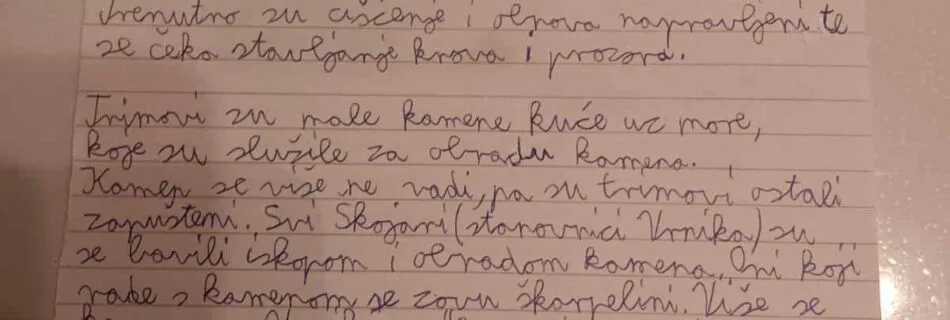 Trenutno su čišćenje i obnova napravljeni te
se čeka stavljanje krova i prozora.
Trimovi su male kamene kuće uz more,
koje su služile za obradu kamena.
Kamen se više ne vadi, pa su trimovi ostali
zapušteni. Svi Škojari (stanovnici Vrnika) su
se bavili iskopom i obradom kamena. Oni koji
rade s kamenom se zovu škarpelini. Više se